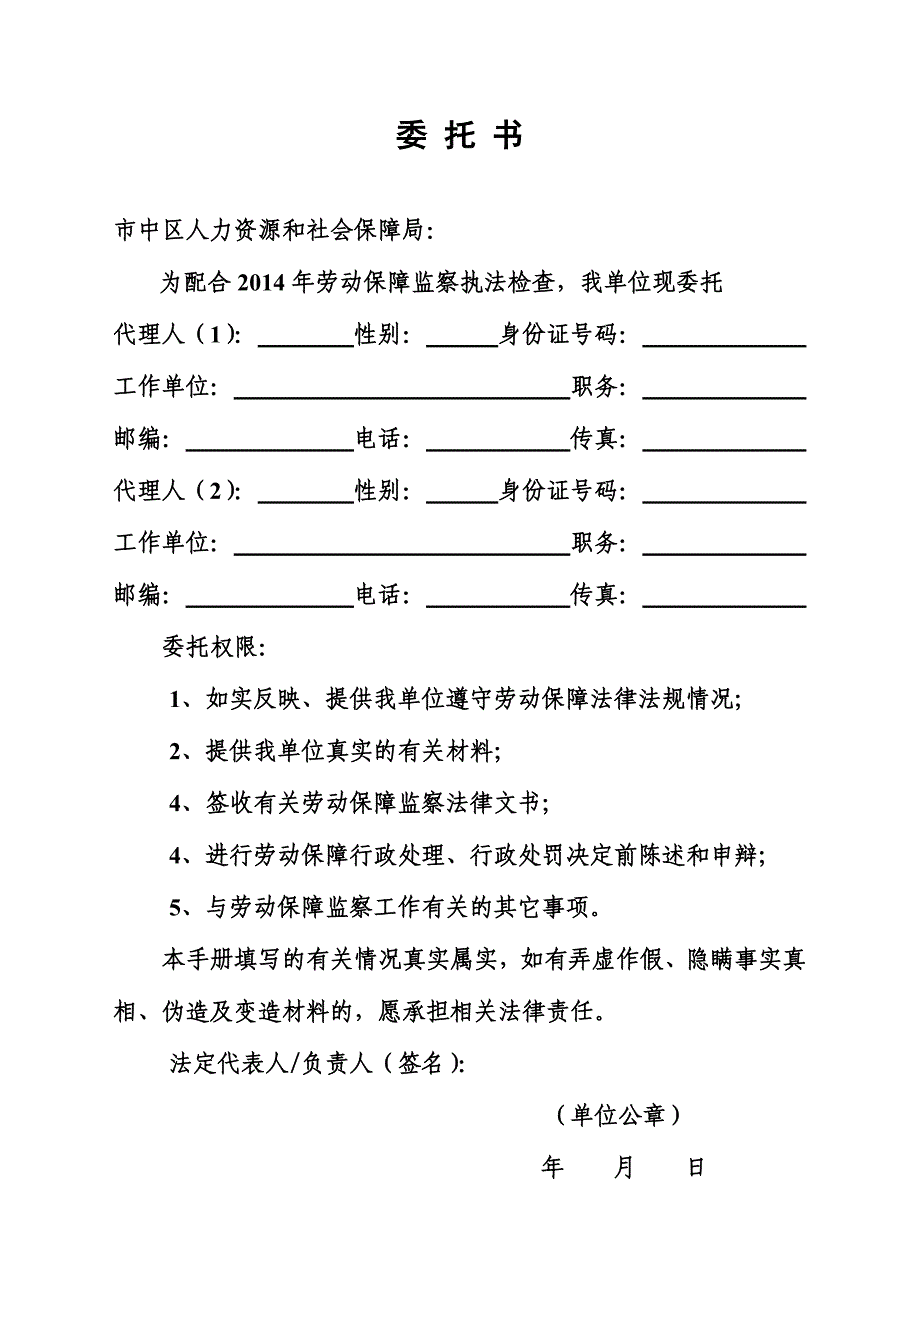 委 托 书
市中区人力资源和社会保障局：
为配合 2014 年劳动保障监察执法检查，我单位现委托
代理人（1）：________性别：______身份证号码：______________
工作单位：____________________________职务：______________
邮编：______________电话：____________传真：______________
代理人（2）：________性别：______身份证号码：______________
工作单位：____________________________职务：______________
邮编：______________电话：____________传真：______________
委托权限：
1、如实反映、提供我单位遵守劳动保障法律法规情况；
2、提供我单位真实的有关材料；
4、签收有关劳动保障监察法律文书；
4、进行劳动保障行政处理、行政处罚决定前陈述和申辩；
5、与劳动保障监察工作有关的其它事项。
本手册填写的有关情况真实属实，如有弄虚作假、隐瞒事实真
相、伪造及变造材料的，愿承担相关法律责任。
法定代表人/负责人（签名）：
（单位公章）
年 月 日